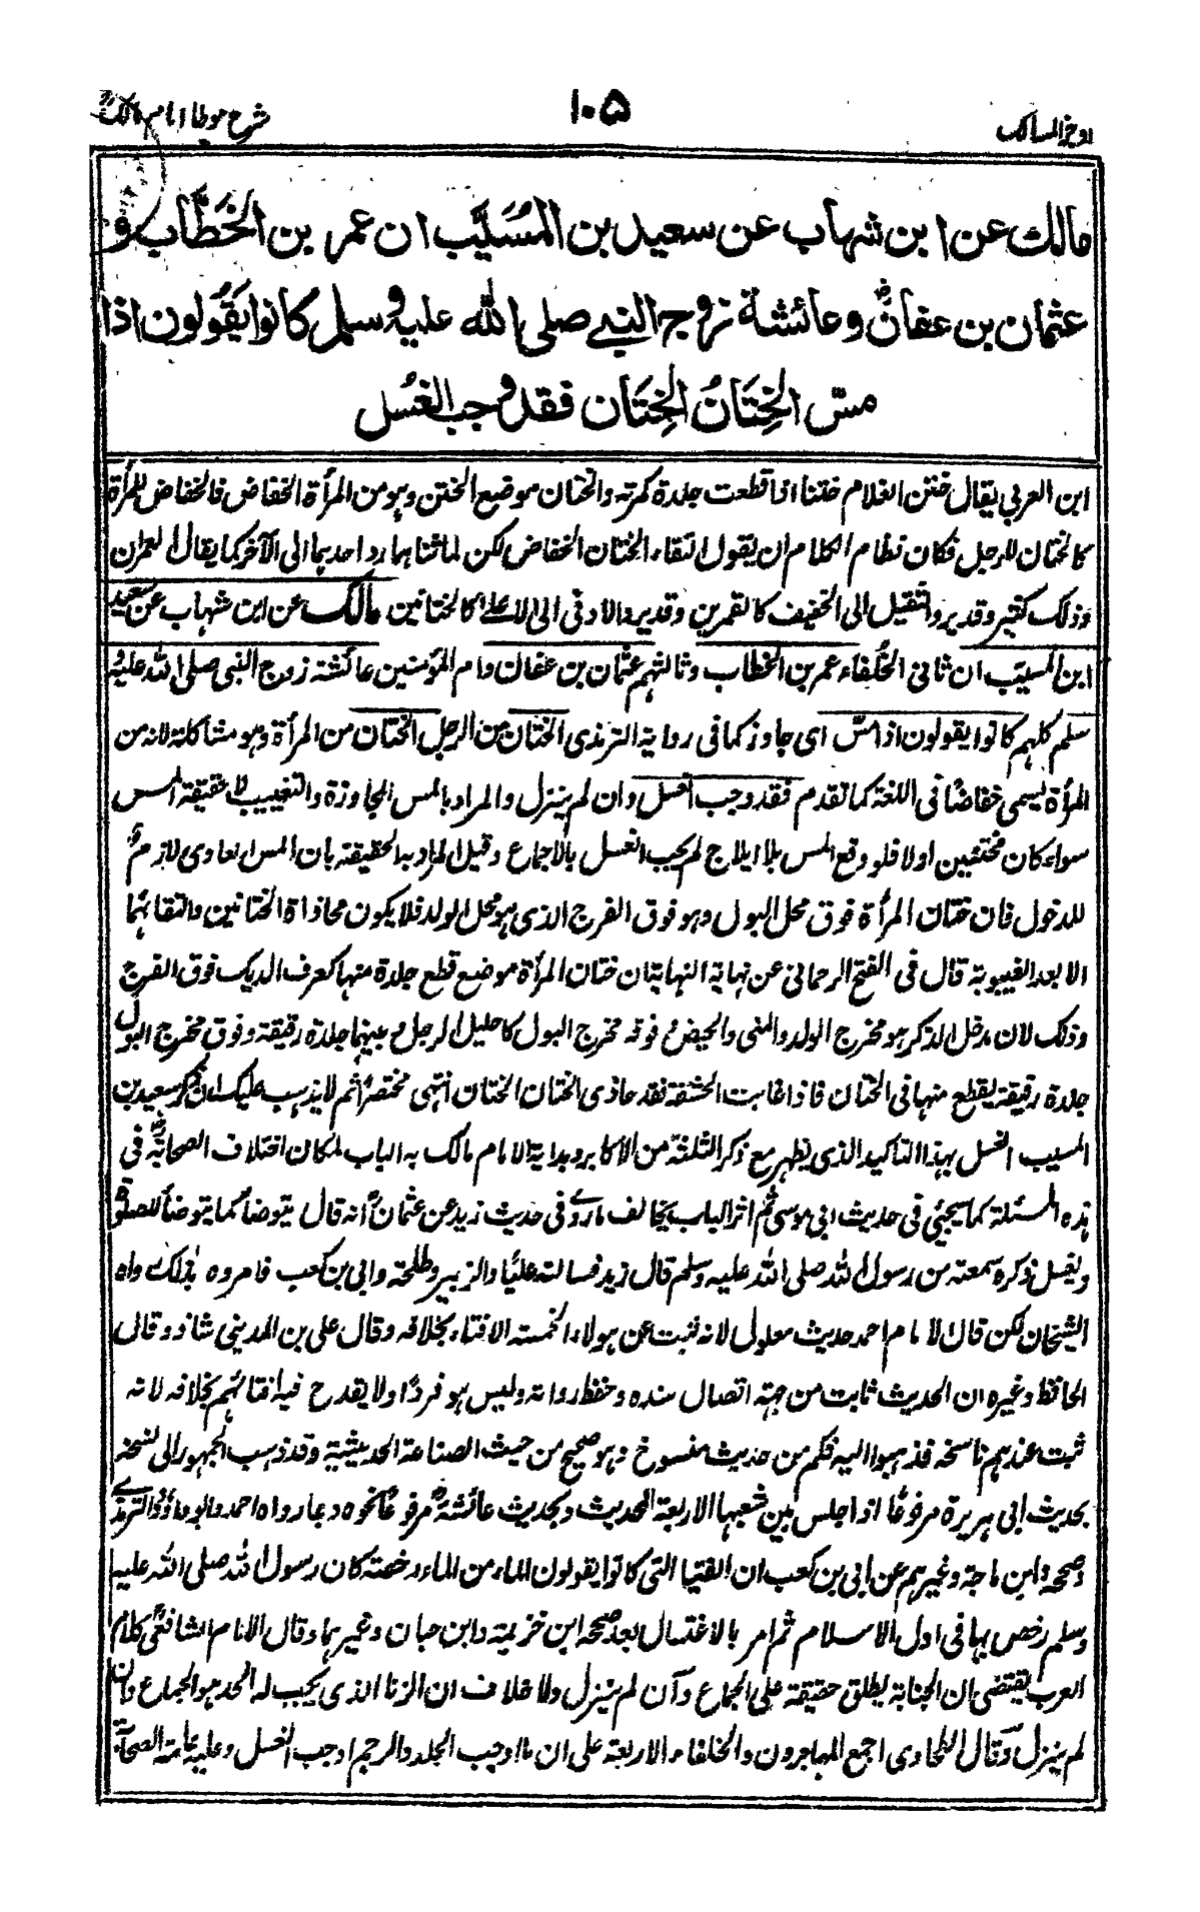 اوجز المسالك
١٠٥
شرح موطا امام مالك
مالك عن ابن شهاب عن سعيد بن المُسَيَّب ان عمر بن الخَطَّاب و
عثمان بن عفان و عائشة زوج النبي صلى الله عليه وسلم كانوا يَقُولون اذا
مسّ الخِتَانُ الخِتَان فقد وجب الغُسل
ابن العربي يقال ختن الغلام ختنا اذا قطعت جلدة كمرته والختان موضع الختن وهو من المرأة الخفاض فالخفاض للمرأة
كالختان للرجل فكان نظام الكلام ان يقول التقاء الختان الخفاض لكن لما ثناهما رد احدهما الى الآخر كما يقال العمران
وذلك كثير وقد يرد الثقيل الى الخفيف كالقمرين وقد يرد الادنى الى الاعلى كالختانين مالك عن ابن شهاب عن سعيد
ابن المسيّب ان ثاني الخُلفاء عمر بن الخطاب وثالثهم عثمان بن عفان وام المؤمنين عائشة زوج النبي صلى الله عليه و
سلم كلهم كانوا يقولون اذا مسّ اى جاوز كما في رواية الترمذي الختان من الرجل الختان من المرأة وهو مشاكلة لانه من
المرأة يسمى خفاضًا في اللغة كما تقدم فقد وجب الغسل وان لم ينزل والمراد بالمس المجاوزة والتغييب لا حقيقة المس
سواء كان مختتنين اولا فلو وقع المس بلا ايلاج لم يجب الغسل بالاجماع وقيل المراد به الحقيقة بان المس العادى لازم
للدخول فان ختان المرأة فوق محل البول وهو فوق الفرج الذى هو محل الولد فلا يكون محاذاة الختانين والتقائهما
الا بعد الغيبوبة قال في الفتح الرحماني عن نهاية النهاية ان ختان المرأة موضع قطع جلدة منها كعرف الديك فوق الفرج
وذلك لان مدخل الذكر هو مخرج الولد والمنى والحيض وفوقه مخرج البول كاحليل الرجل وبينهما جلدة رقيقة وفوق مخرج البول
جلدة رقيقة يقطع منها في الختان فاذا غابت الحشفة فقد حاذى الختان الختان انتهى مختصرًا ثم لا يذهب عليك ان ذكر سعيد بن
المسيب الغسل بهذا التاكيد الذى يظهر مع ذكر الثلثة من الاكابر وبداية الامام مالك به الباب لمكان اختلاف الصحابة في
هذه المسئلة كما سيجيئ في حديث ابى موسى ثم اثر الباب يخالف ما روى في حديث زيد عن عثمان انه قال يتوضأ كما يتوضأ للصلوة
ويغسل ذكره سمعته من رسول الله صلى الله عليه وسلم قال زيد فسالت عليًا والزبير وطلحة وابى بن كعب فامروه بذلك رواه
الشيخان لكن قال الامام احمد حديث معلول لانه ثبت عن هولاء الخمسة الافتاء بخلافه وقال على بن المديني شاذ وقال
الحافظ وغيره ان الحديث ثابت من جهة اتصال سنده وحفظ رواته وليس هو فردًا ولا يقدح فيه افتائهم بخلافه لانه
ثبت عندهم ناسخه فذهبوا اليه فكم من حديث منسوخ وهو صحيح من حيث الصناعة الحديثية وقد ذهب الجمهور الى نسخه
بحديث ابى هريرة مرفوعًا اذا جلس بين شعبها الاربعة الحديث وبحديث عائشة مرفوعًا نحوه وبما رواه احمد وابوداؤد والترمذى
وصححه وابن ماجة وغيرهم عن ابى بن كعب ان الفتيا التى كانوا يقولون الماء من الماء رخصة كان رسول الله صلى الله عليه
وسلم رخص بها في اول الاسلام ثم امر بالاغتسال بعد صححه ابن خزيمة وابن حبان وغيرهما وقال الامام الشافعي كلام
العرب يقتضى ان الجنابة يطلق حقيقة على الجماع وان لم ينزل ولا خلاف ان الزنا الذى يجب له الحد هو الجماع وان
لم ينزل وقال الطحاوى اجمع المهاجرون والخلفاء الاربعة على ان ما اوجب الجلد والرجم اوجب الغسل وعليه عامة الصحابة